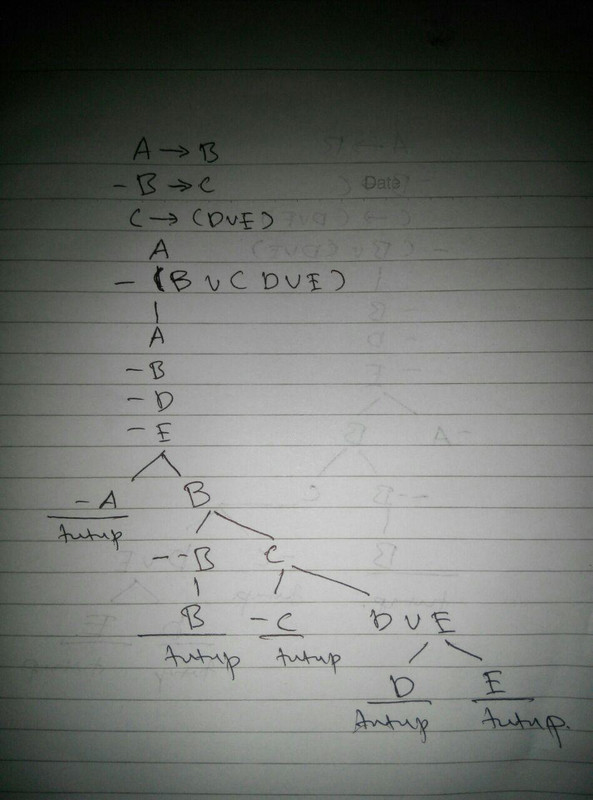 A → B
Date
- B → C
C → (D∨E)
A
- (B ∨ ( D∨E)
A
- B
- D
- E
- A B
tutup
- - B C
B - C D ∨ E
tutup tutup
D E
tutup tutup.